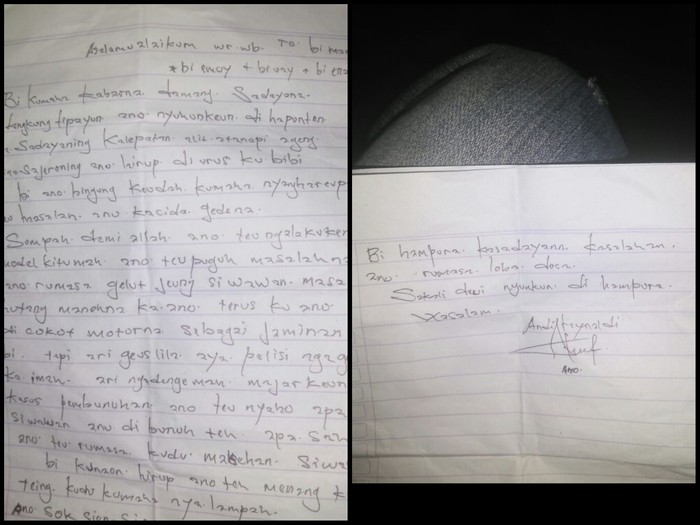 Aselamualaikum wr. wb. TO. bi
* bi enoy + bi uay + bi
Bi kumaha kabarna damang sadayana.
tipayun ano. nyuhunkeun di hapunten
Sadayaning kalepatan alit atanapi ageng
ano. hirup di urus ku bibi
bi ano. bingung keudah kumaha nyanghareup
masalah anu kacida gedena.
Sompah demi allah ano teu ngalakuken
model kitumah ano teu puguh masalahna
ano rumasa gelut jeung si wawan. masa
hutang manehna ka. ano. terus ku ano.
di cokot motorna sebagai jaminan
bi. tapi ari geus lila aya pelisi
ka iman. ari ngadenge mah majarkeun
kasus pembunuhan ano teu nyaho apa
siwawan anu di bunuh teh apa
ano teu rumasa kudu maehan. Siwa
bi kunaon. hirup ano teh menang
teing. kudu kumaha nya lampah.
Ano sok sien
Bi hampura kasadayana kasalahan.
ano. rumasa loba dosa.
Sakali deui nyunkun di hampura.
Wasalam.
Andi Reynaldi
Ano.